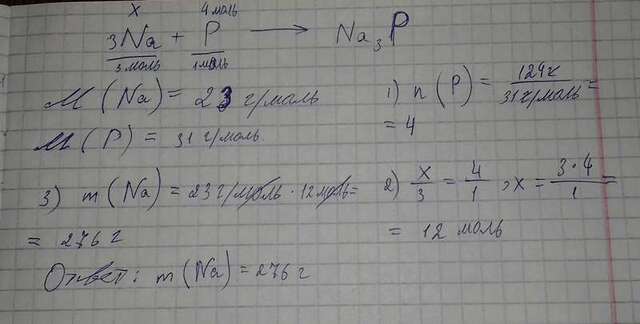 x 4 моль
3Na + P ⟶ Na₃P
3 моль 1 моль
M (Na) = 23 г/моль
M (P) = 31 г/моль
1) n (P) = 124г / 31 г/моль =
= 4
2) x/3 = 4/1 , x = 3·4/1 =
= 12 моль
3) m (Na) = 23 г/моль · 12 моль =
= 276 г
Ответ: m (Na) = 276 г